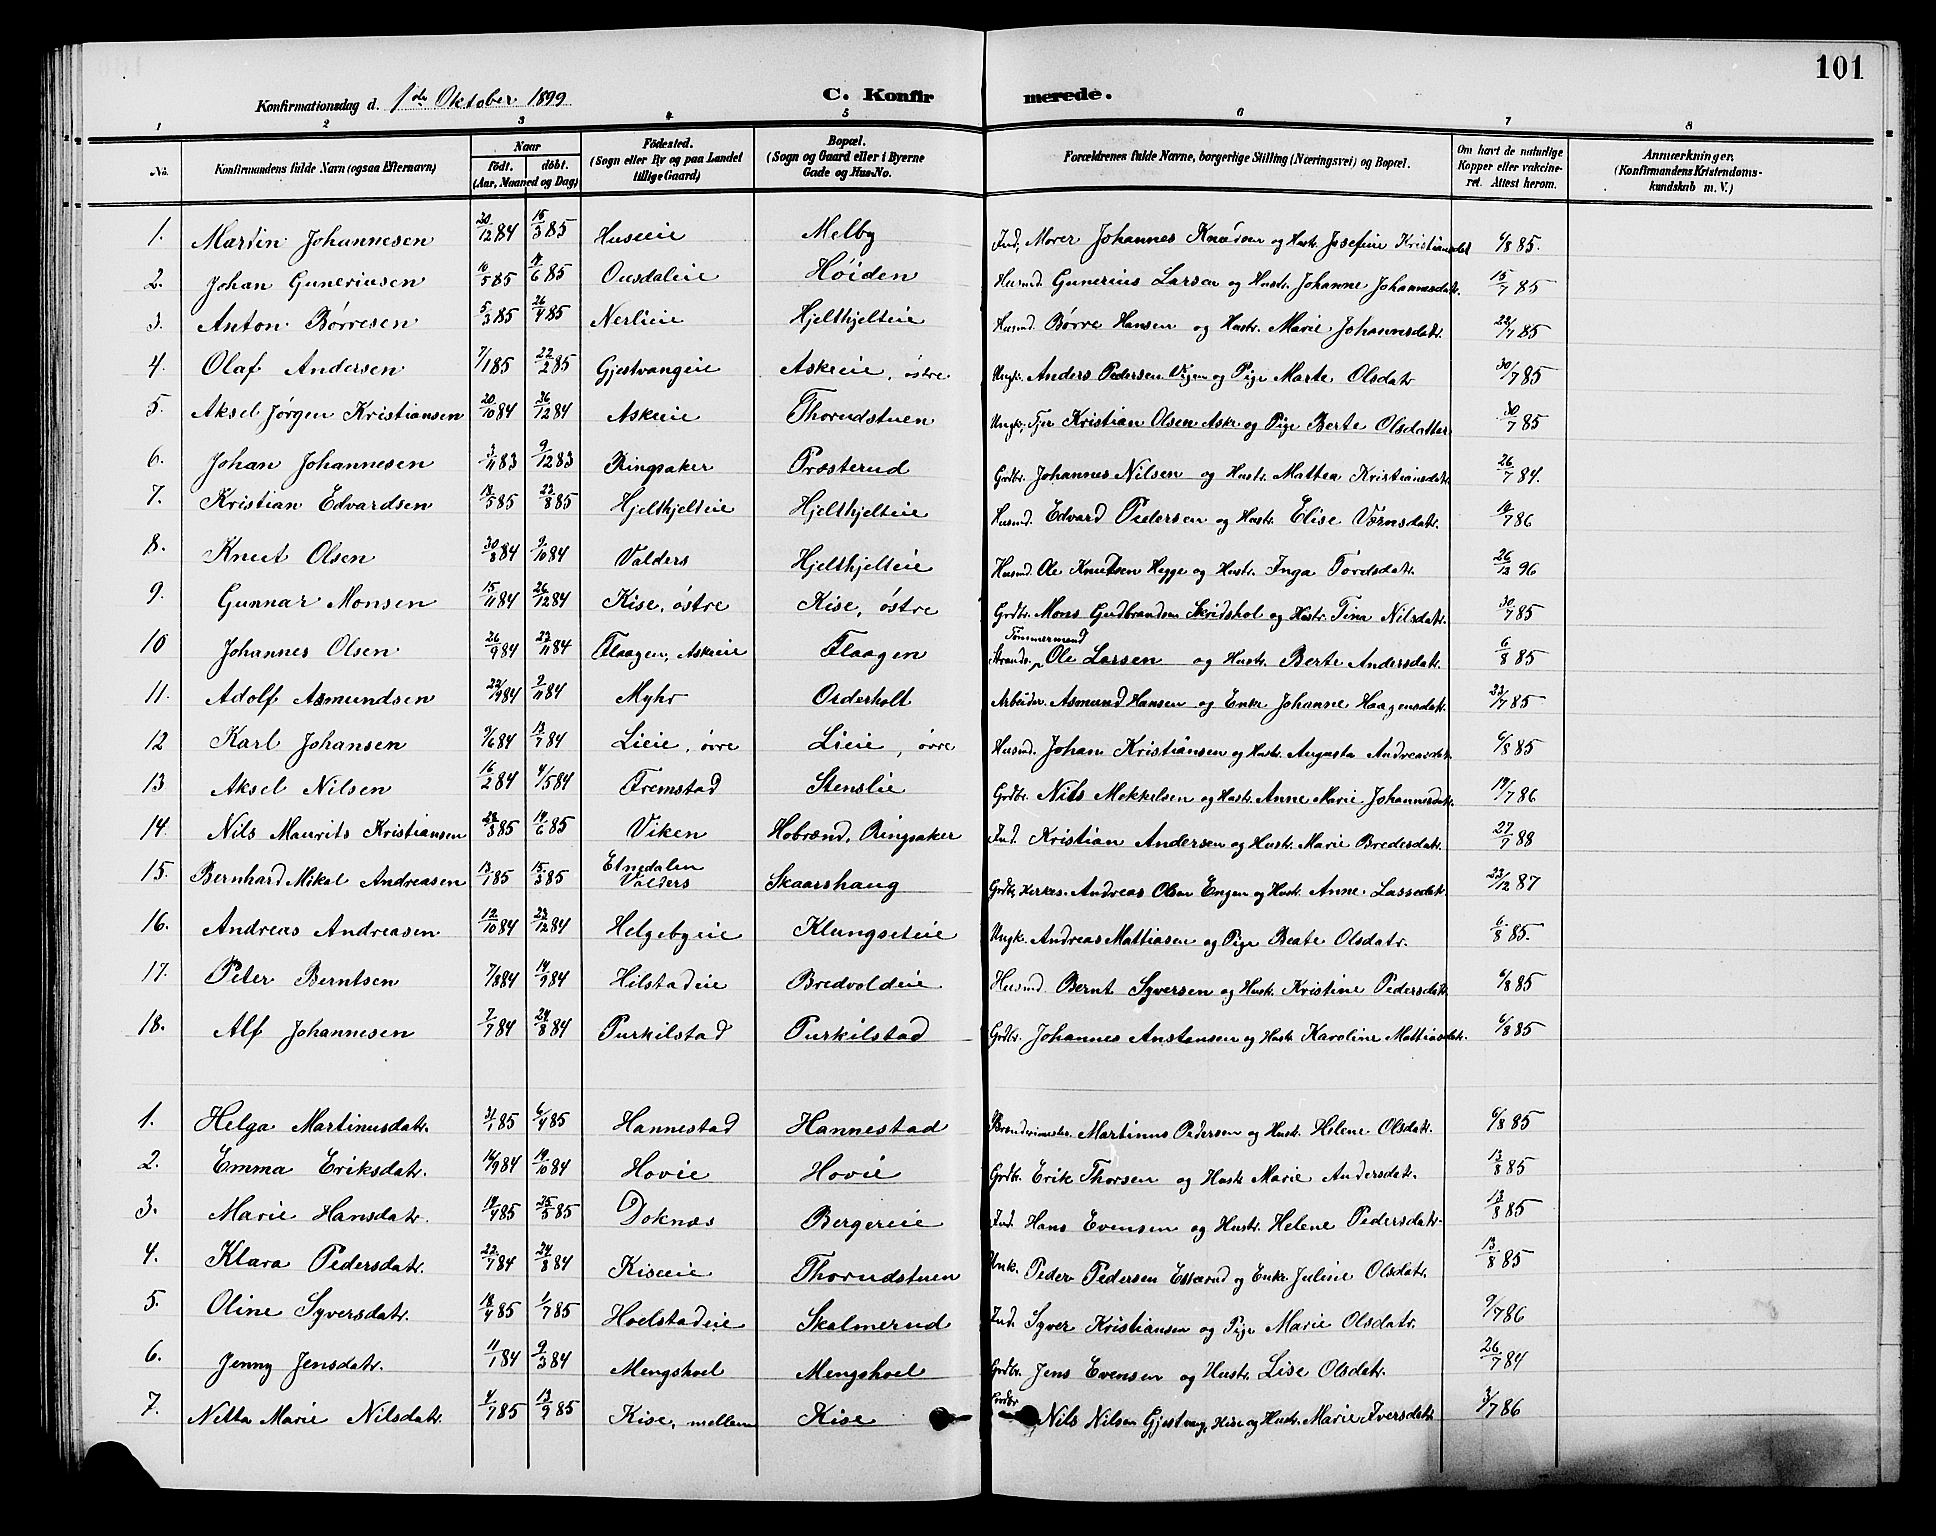 101
Konfirmationsdag d. 1ste Oktober 1899 C. Konfirmerede.
1 2 3 4 5 6 7 8
No. Konfirmandens fulde Navn (ogsaa Efternavn) Naar født. døbt. (Aar, Maaned og Dag) Fødested. (Sogn eller By og paa Landet tillige Gaard) Bopæl. (Sogn og Gaard eller i Byerne Gade og Hus-No. Forældrenes fulde Navne, borgerlige Stilling (Næringsvei) og Bopæl. Om havt de naturlige Kopper eller vakcineret. Attest herom. Anmærkninger. (Konfirmandens Kristendomskundskab m. V.)
1. Martin Johannesen 20/12 84 15/3 85 Huseeie Melby Ind. Murer Johannes Knudsen og Hustr. Josefine Kristiansdat 6/8 85.
2. Johan Guneriusen 10/5 85 14/6 85 Ousdaleie Høiden Husmd. Gunerius Larsen og Hustr. Johanne Johannesdatr. 15/7 85
3. Anton Børresen 5/3 85 26/4 85 Nerlieie Hjelthjelteie Husmd. Børre Hansen og Hustr. Marie Johannsdatr. 22/7 85
4. Olaf Andersen 7/1 85 22/2 85 Gjestvangeie Askeeie, østre Ungk. Anders Pedersen Vigen og Pige Marte Olsdatr 30/7 85
5. Aksel Jørgen Kristiansen 20/10 84 26/12 84 Askeeie Thorudstuen Ungk. Tjen Kristian Olsen Aske og Pige Berte Olsdatter 30/7 85
6. Johan Johannesen 3/11 83 9/12 83 Ringsaker Præsterud Grdbr. Johannes Nilsen og Hustr. Mattea Kristiansdatr 26/7 84.
7. Kristian Edvardsen 13/5 85 23/8 85 Hjelthjelteie Hjelthjelteie Husmd. Edvard Pedersen og Hustr. Elise Vørnsdatr. 14/7 86
8. Knut Olsen 30/8 84 9/10 84 Valders Hjelthjelteie Husmd. Ole Knudsen Hegge og Hustr. Inga Tordsdatr. 26/12 96
9. Gunnar Monsen 15/11 84 26/12 84 Kise, østre Kise, østre Grdbr. Mons Gudbrandsen Skridshol og Hustr. Tina Nilsdatr. 30/7 85
10 Johannes Olsen 26/9 84 23/11 84 Flaagen, Askeeie Flaagen Strands. Tømmermand Ole Larsen og Hustr. Berte Andersdatr. 6/8 85
11. Adolf Asmundsen 22/9 84 2/11 84 Myhr Osderholt Arbeider. Asmund Hansen og Enke Johanne Haagensdatr. 23/7 85
12 Karl Johansen 9/6 84 13/7 84 Lieie, øvre Lieie, øvre Husmd. Johan Kristiansen og Hustr. Augusta Andreasdatr. 6/8 85
13 Aksel Nilsen 16/2 84 4/5 84 Fremstad Stenslie Grdbr. Nils Mekkelsen og Hustr. Anne Marie Johannesdatr 19/7 86
14. Nils Maurits Kristiansen 28/3 85 14/6 85 Viken Hobrænd, Ringsaker Ind. Kristian Andersen og Hustr. Marie Bredesdatr. 27/7 88
15. Bernhard Mikal Andreasen 13/1 85 15/3 85 Etnedalen Valders Skaarshaug Grdbr. Kirkes. Andreas Olsen Engen og Hustr. Anne Lassedatr 23/12 87
16. Andreas Andreasen 12/10 84 23/12 84 Helgebyeie Klungseteie Ungk. Andreas Mattiasen og Pige Beate Olsdatr. 6/8 85.
17. Peter Berntsen 7/8 84 14/9 84 Hilstadeie Bredvoldeie Husmd. Bernt Syversen og Hustr. Kristine Pedersdatr 6/8 85
18. Alf Johannesen 2/7 84 24/8 84 Purkilstad Purkilstad Grdbr. Johannes Anstensen og Hustr. Karoline Mattiasdatr. 6/8 85
1. Helga Martinusdatr. 31/1 85 6/4 85 Hannestad Hannestad Martinus Pedersen og Hustr. Helene Olsdatr. 6/8 85
2. Emma Eriksdatr. 14/9 84 19/10 84 Hovie Hovie Grdbr. Erik Thorsen og Hustr. Marie Andersdatr. 13/8 85
3. Marie Hansdatr. 19/4 85 25/5 85 Doknæs Bergereie Ind. Hans Evensen og Hustr. Helene Pedersdatr. 13/8 85
4. Klara Pedersdatr. 22/7 84 24/8 84 Kiseeie Thorudstuen Unk. Peder Pedersen Esserud og Enke Juline Olsdatr. 13/8 85
5. Oline Syversdatr. 18/4 85 1/7 85 Hoelstadeie Skalmerud Ind. Syver Kristiansen og Pige Marie Olsdatr. 9/7 86
6. Jenny Jensdatr. 11/1 84 9/3 84 Mengshoel Mengshoel Grdbr. Jens Evensen og Hustr. Lise Olsdatr. 26/7 84
7. Netta Marie Nilsdatr. 4/7 85 13/9 85 Kise, mellem Kise Grdbr. Nils Nilsen Gjestvang, Kise og Hustr. Marie Iversdatr. 3/7 86